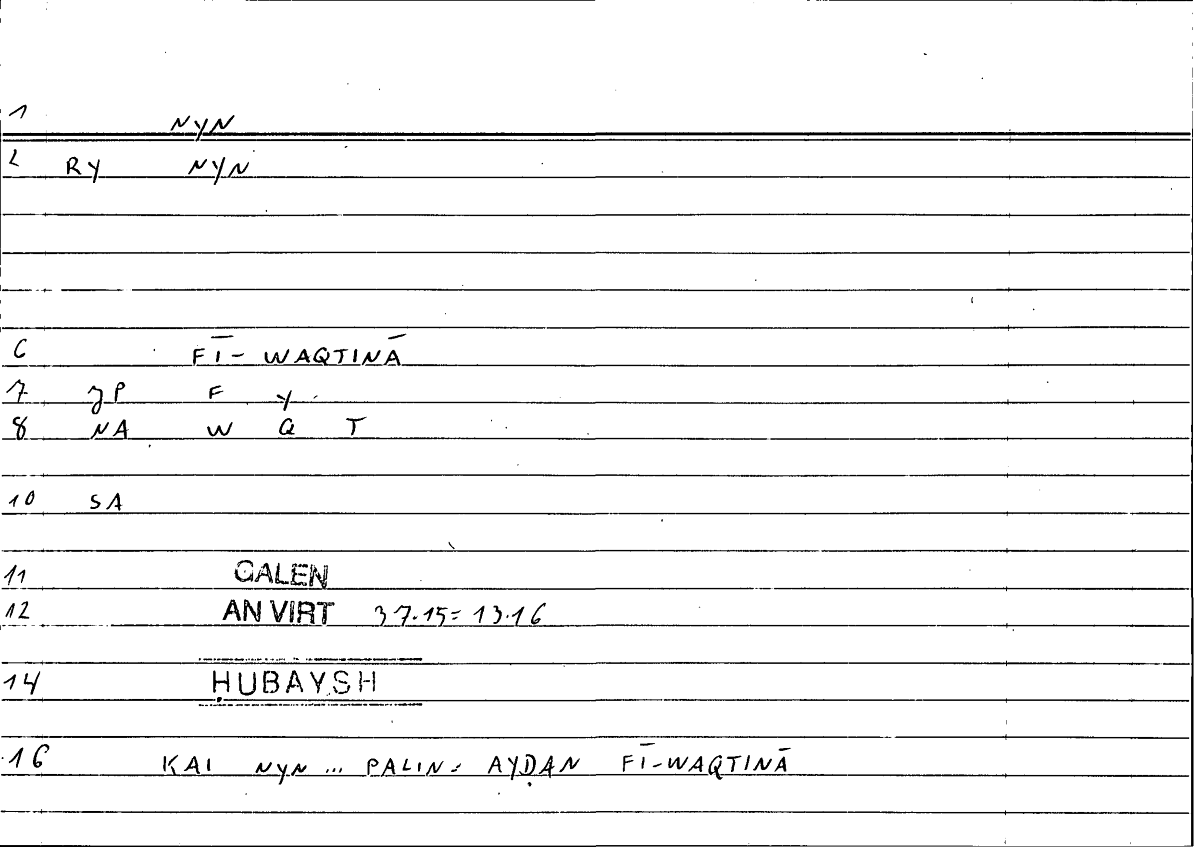 1 NYN
2 RY NYN
6 FĪ- WAQTINĀ
7 JP F Y
8 NA W Q T
10 SA
11 GALEN
12 AN VIRT 37.15= 13.16
14 ḤUBAYSH
16 KAI NYN ... PALIN: AYḌAN FĪ-WAQTINĀ